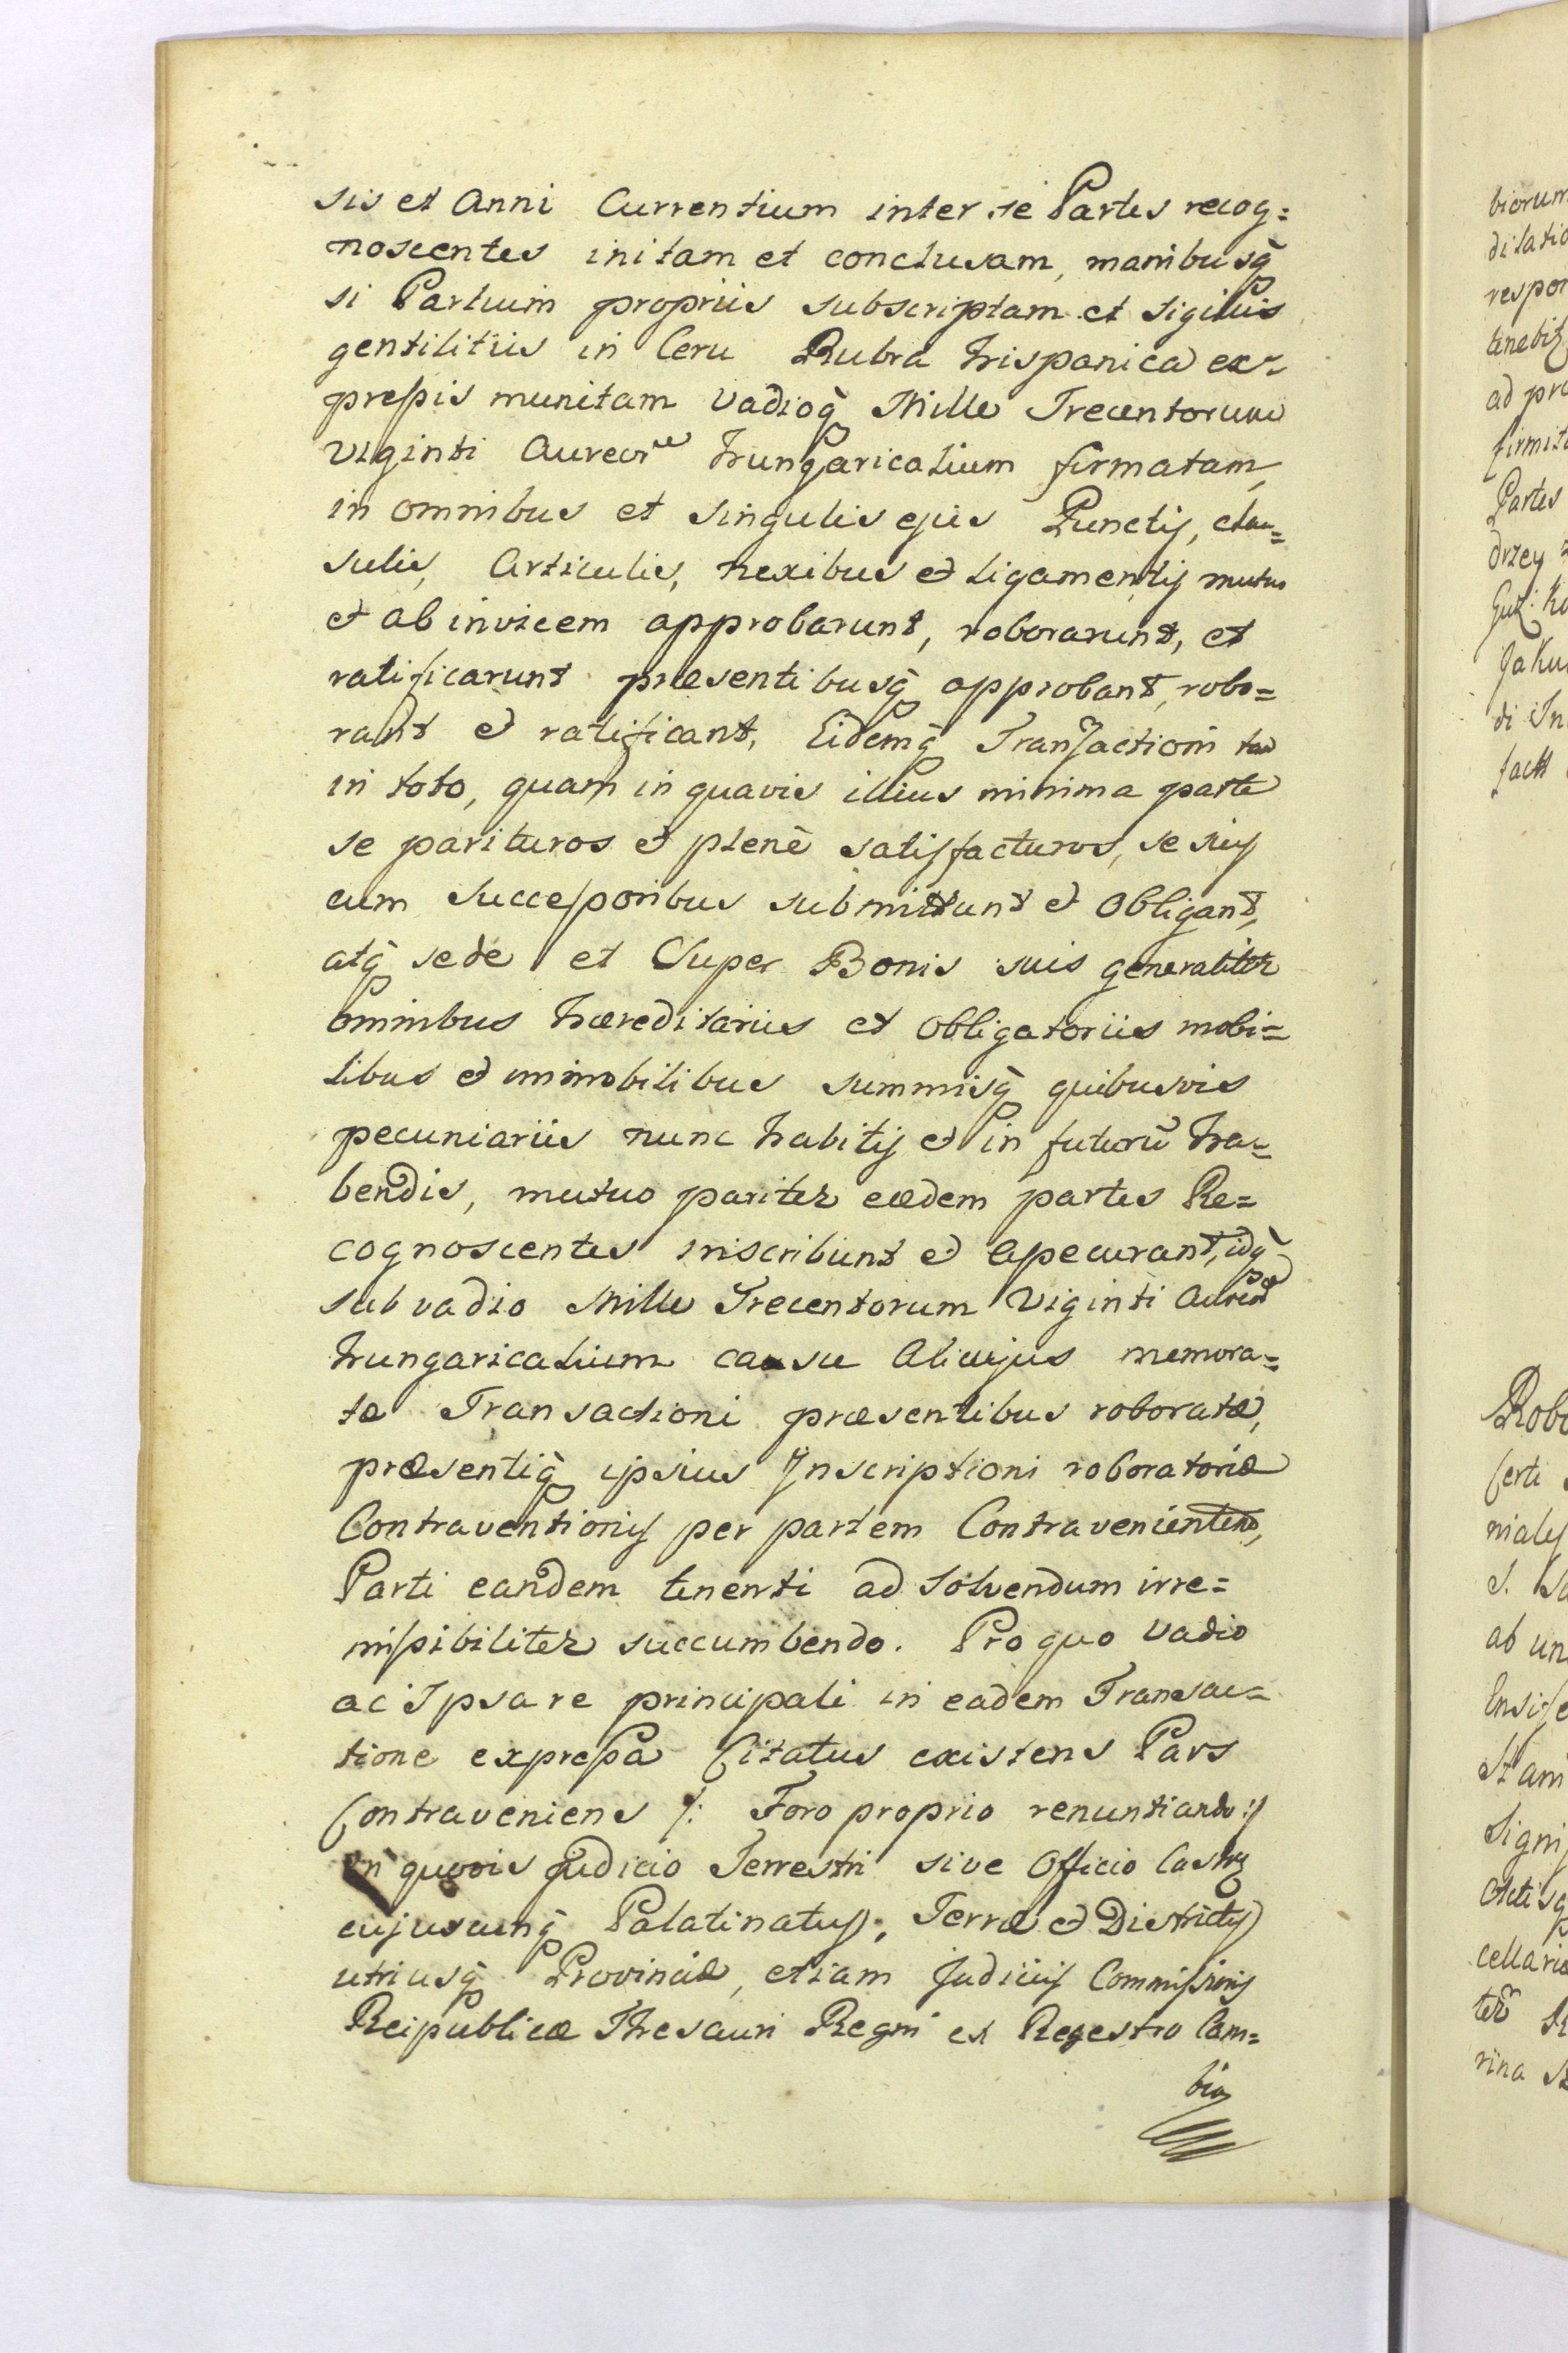 sis et Anni Currentium inter se Partes recog=
noscentes initam et conclusam, manibusq̃
si Partium propriis subscriptam et sigillis
gentilitiis in Cera Rubra Hispanica ex=
preſsis munitam Vadioq̃ Mille Trecentorum
Viginti Aureor Hungaricalium firmatam,
in omnibus et singulis ejus Punctis, clau=
sulis, Articulis, nexibus et Ligamentis mutuo
et ab invicem approbarunt, roborarunt, et
ratificarunt præsentibusq̃ approbant, robo=
rant et ratificant, Eidemq̃ Tranſactioni tam
in toto, quam in quavis illius minima parte
se parituros et plenè satisfacturos, se suis
cum Succeſsoribus submittunt et Obligant,
atq̃ se de et Super Bonis suis generaliter
omnibus Hæreditariis et Obligatoriis mobi=
libus et immobilibus summisq̃ quibusvis
pecuniariis nunc habitis et in futurũ ha=
bendis, mutuo pariter eædem partes Re=
cognoscentes inscribunt et aſsecurant, idq̃
sub vadio Mille Trecentorum Viginti Aureor
Hungaricalium causu Alicujus memora=
tæ Transactioni præsentibus roboratæ,
præsentiq̃ ipsius Inscriptioni roboratoriæ
Contraventionis per partem Contravenientem,
Parti eandem tenenti ad Solvendum irre=
miſsibiliter succumbendo. Pro quo Vadio
ac Ipsa re principali in eadem Transac=
tione expreſsa Citatus existens Pars
Contraveniens /: Foro proprio renuntiando :/
in quovis Judicio Terrestri sive Officio Castrī
cujuscunq̃ Palatinatus, Terræ et Districtus
utriusq̃ Provinciæ, etiam Judiciis Commiſsionis
Reipublicæ Thesauri Regni ex Regestro Cam=
bio
biorum
dilatio
respon
tenebit
ad pra
firmita
Partes
drzey
Jaku
di In
fact
Robo
certi
niales
ab un
Ensife
Stani
Signi
Actisq
cellaria
rina